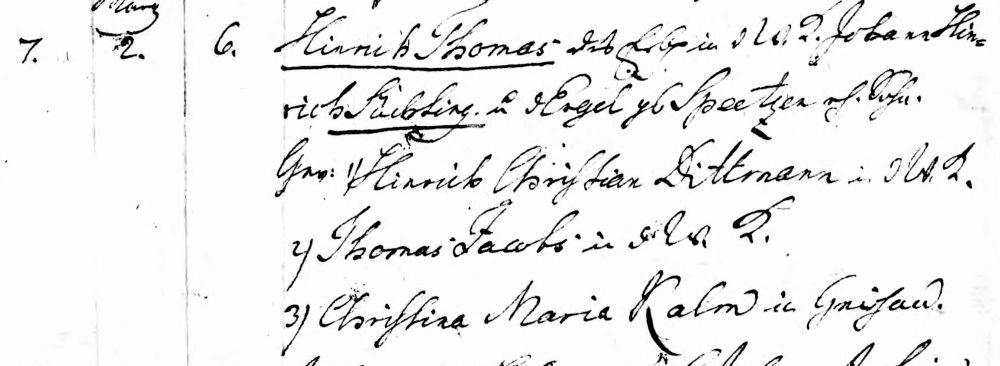 März
7. 2. 6. Hinrich Thomas des in d. W. K. Johann Hin=
rich Süchting. u d Engel gb Speetzen ehl. Sohn.
Gev: 1) Hinrich Christian Dittmann in d W. K.
2) Thomas Jacobs in d W. K.
3) Christina Maria Kalm in Gnissau.